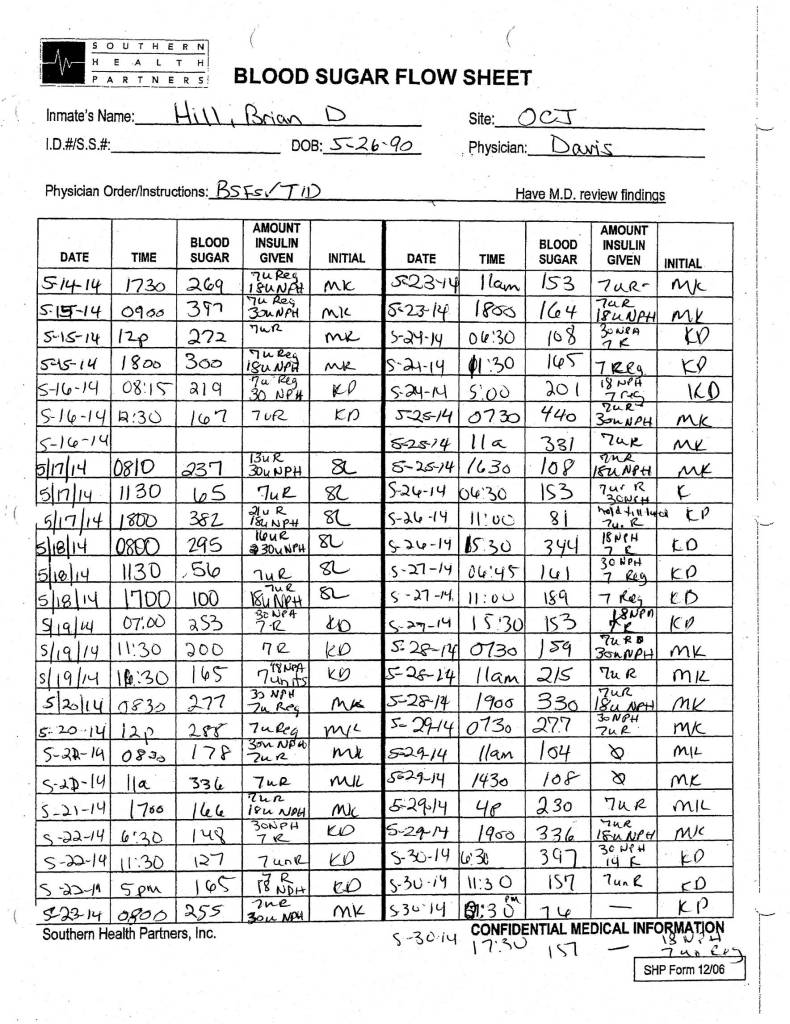 SOUTHERN
HEALTH
PARTNERS
BLOOD SUGAR FLOW SHEET
Inmate's Name: Hill, Brian D Site: OCJ
I.D.#/S.S.#: DOB: 5-26-90 Physician: Davis
Physician Order/Instructions: BSFS/TID Have M.D. review findings
DATE TIME BLOOD SUGAR AMOUNT INSULIN GIVEN INITIAL DATE TIME BLOOD SUGAR AMOUNT INSULIN GIVEN INITIAL
5-14-14 1730 269 7u Reg 18u NPH MK 5-23-14 11am 153 7uR MK
5-15-14 0900 397 7u Reg 30u NPH MK 5-23-14 1800 164 7uR 18u NPH MK
5-15-14 12p 272 7uR MK 5-24-14 06:30 108 30 NPH 7 R KD
5-15-14 1800 300 7u Reg 18u NPH MK 5-24-14 11:30 165 7 Reg KD
5-16-14 08:15 219 7u Reg 30 NPH KD 5-24-14 5:00 201 18 NPH 7 reg KD
5-16-14 12:30 167 7uR KD 5-25-14 0730 440 7uR 30u NPH MK
5-16-14 5-25-14 11a 331 7uR MK
5/17/14 0810 237 13uR 30u NPH SL 5-25-14 1630 108 7uR 18u NPH MK
5/17/14 1130 65 7uR SL 5-26-14 06:30 153 7ur R 30 NPH K
5/17/14 1800 382 21uR 18u NPH SL 5-26-14 11:00 81 7u. R KD
5/18/14 0800 295 16uR 30u NPH SL 5-26-14 15:30 344 18 NPH 7 R KD
5/18/14 1130 56 7uR SL 5-27-14 06:45 161 30 NPH 7 Reg KD
5/18/14 1700 100 7uR 18u NPH SL 5-27-14 11:00 189 7 Reg KD
5/19/14 07:00 253 30 NPH 7-R KD 5-27-14 15:30 153 18 NPH 7 R KD
5/19/14 11:30 200 7R KD 5-28-14 0730 159 7uR 30u NPH MK
5/19/14 16:30 165 18 NPH 7units KD 5-28-14 11am 215 7uR MK
5/20/14 0830 277 30 NPH 7u Reg MK 5-28-14 1900 330 7uR 18u NPH MK
5-20-14 12p 288 7u Reg MK 5-29-14 0730 277 30 NPH 7uR MK
0830 178 30u NPH 7uR MK 5-29-14 11am 104 Ø MK
11a 336 7uR MK 5-29-14 1430 108 Ø MK
5-21-14 1700 166 7uR 18u NPH MK 5-29-14 4p 230 7uR MK
5-22-14 6:30 148 30 NPH 7 R KD 5-29-14 1900 336 7uR 18u NPH MK
5-22-14 11:30 127 7unR KD 5-30-14 6:30 397 30 NPH 14 R KD
5-22-14 5pm 165 7 R 18 NPH KD 5-30-14 11:30 157 7unR KD
5-23-14 0800 255 7uR 30u NPH MK 5-30-14 1:30 PM 76 — KD
Southern Health Partners, Inc. CONFIDENTIAL MEDICAL INFORMATION
5-30-14 17:30 157 — 18 NPH 7un Reg
SHP Form 12/06